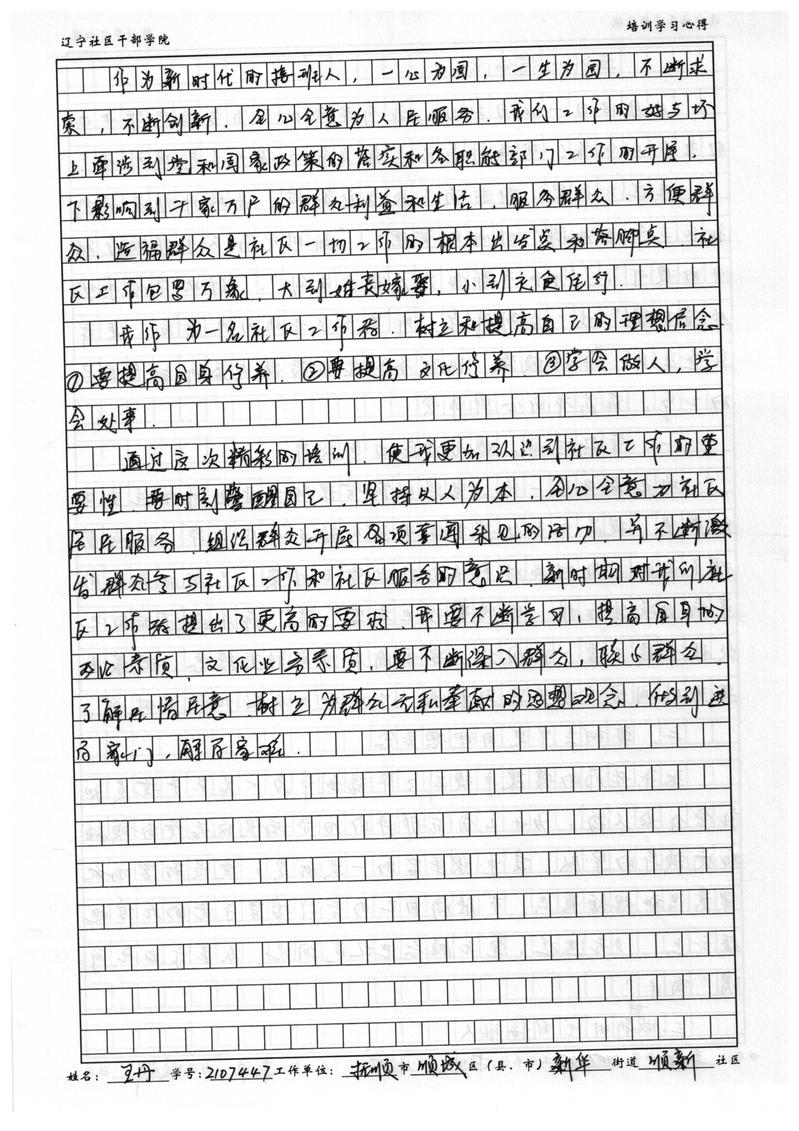 辽宁社区干部学院
培训学习心得
作为新时代的接班人，一心为国，一生为国，不断求
索，不断创新，全心全意为人民服务。我们工作的
上面涉到党和国家政策的落实和各职能部门工作的开展，
下影响到千家万户的群众利益和生活，服务群众、方便群
众、造福群众是社区一切工作的根本出发点和落脚点，社
区工作包罗万象，大到婚丧嫁娶，小到衣食住行。
我作为一名社区工作者，树立和提高自己的理想信念
①要提高自身修养，②要提高文化修养，③学会做人，学
会处事。
通过这次精彩的培训，使我更加认识到社区工作的重
要性，要时刻警醒自己，坚持以人为本，全心全意为社区
居民服务，组织群众开展各项喜闻乐见的活动，并不断激
发群众参与社区工作和社区服务的意识，新时期对我们社
区工作者提出了更高的要求，我要不断学习，提高自身的
政治素质，文化业务素质，要不断深入群众，联系群众，
了解民情民意，树立为群众无私奉献的思想观念，做到进
百家门，解百家难。
姓名：王丹 学号：2107447 工作单位：抚顺市 顺城 区（县、市）新华 街道 顺新 社区